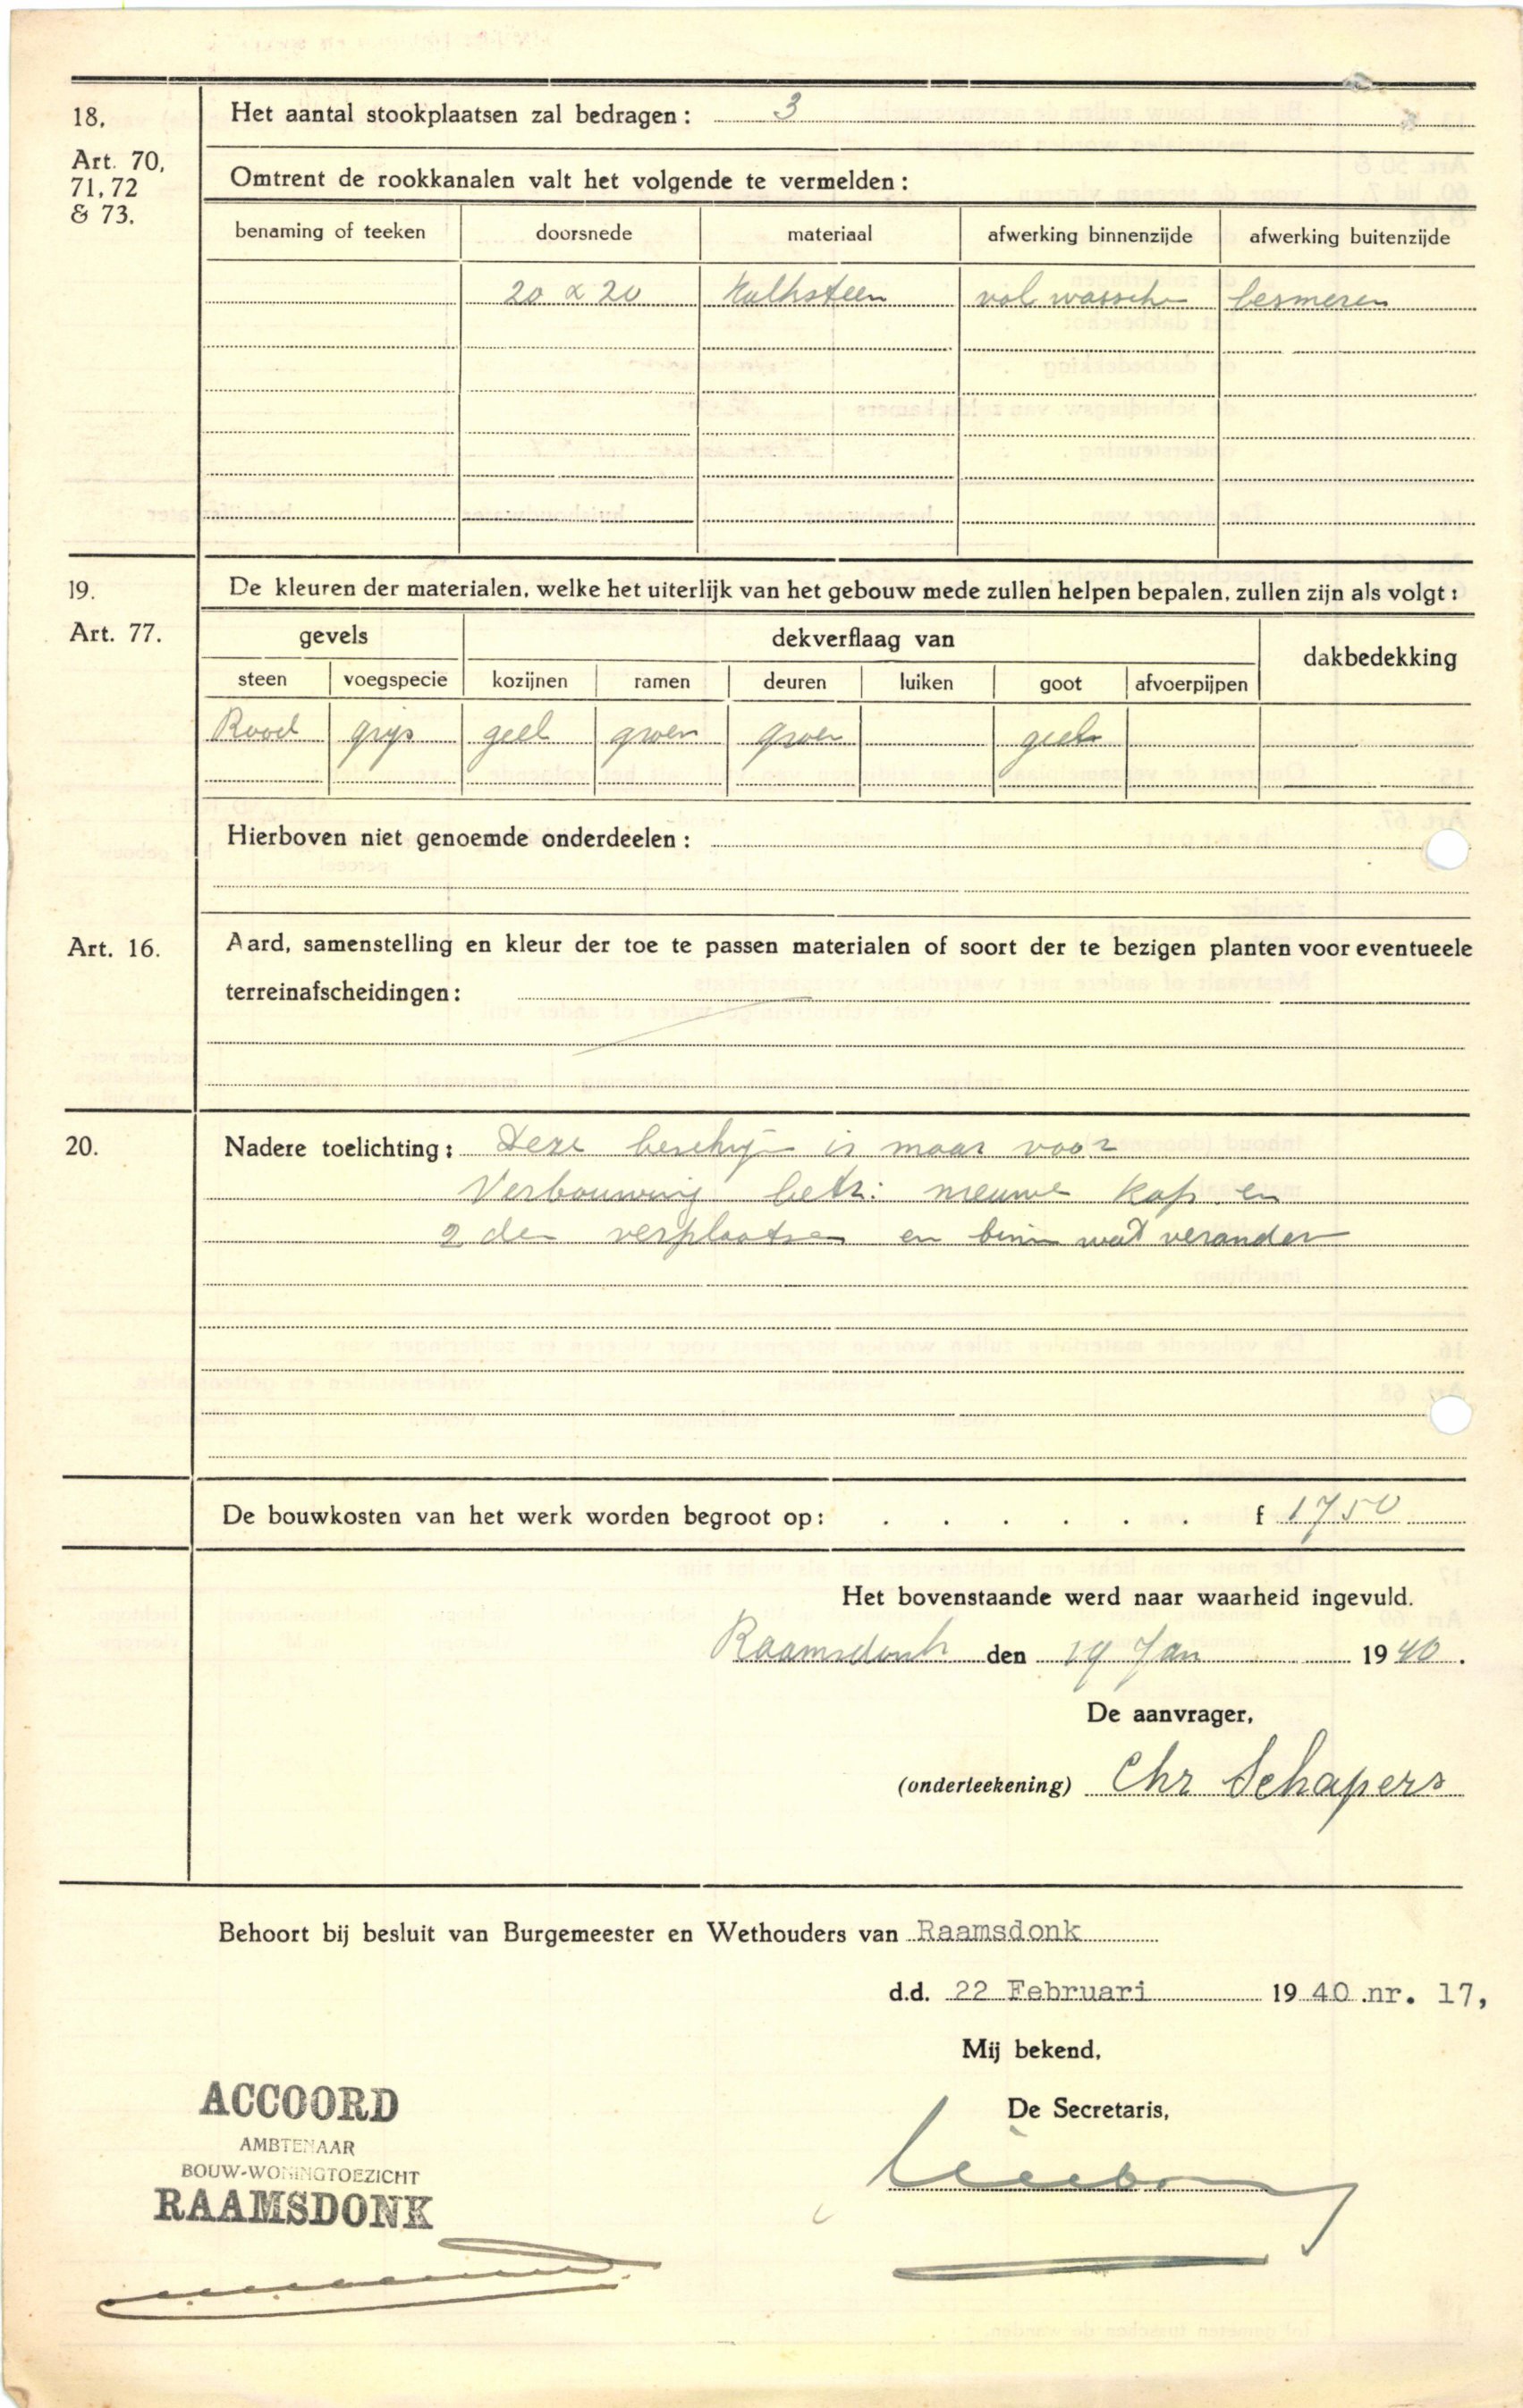 18. Het aantal stookplaatsen zal bedragen: 3
Art. 70, 71, 72 & 73.
Omtrent de rookkanalen valt het volgende te vermelden:
benaming of teeken doorsnede materiaal afwerking binnenzijde afwerking buitenzijde
20 x 20 Kalksteen vol
19. De kleuren der materialen, welke het uiterlijk van het gebouw mede zullen helpen bepalen, zullen zijn als volgt:
Art. 77.
gevels dekverflaag van dakbedekking
steen voegspecie kozijnen ramen deuren luiken goot afvoerpijpen
Rood grijs geel groen groen geel
Hierboven niet genoemde onderdeelen:
Art. 16. Aard, samenstelling en kleur der toe te passen materialen of soort der te bezigen planten voor eventueele
terreinafscheidingen:
20. Nadere toelichting: Deze is maar voor
Verbouwing betr: nieuwe kap en
verplaatsen en wat verander
De bouwkosten van het werk worden begroot op: . . . . . . f 1750
Het bovenstaande werd naar waarheid ingevuld.
Raamsdonk den 19 Jan 1940.
De aanvrager,
(onderteekening) Chr Schapers
Behoort bij besluit van Burgemeester en Wethouders van Raamsdonk
d.d. 22 Februari 1940 nr. 17,
Mij bekend,
De Secretaris,
ACCOORD
AMBTENAAR
BOUW-WONINGTOEZICHT
RAAMSDONK